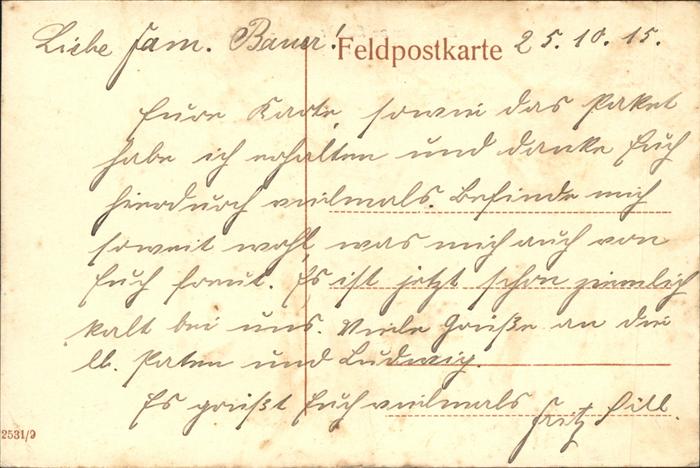 Liebe Fam. Bauer! Feldpostkarte 25.10.15.
Eure Karte, sowie das Paket
habe ich erhalten und danke Euch
hierdurch vielmals. Befinde mich
soweit wohl, was mich auch von
Euch freut. Es ist jetzt schon ziemlich
kalt bei uns. Viele Grüße an die
lb. Paten und Ludwig.
Es grüßt Euch vielmals
Fritz Hill.
2531/9